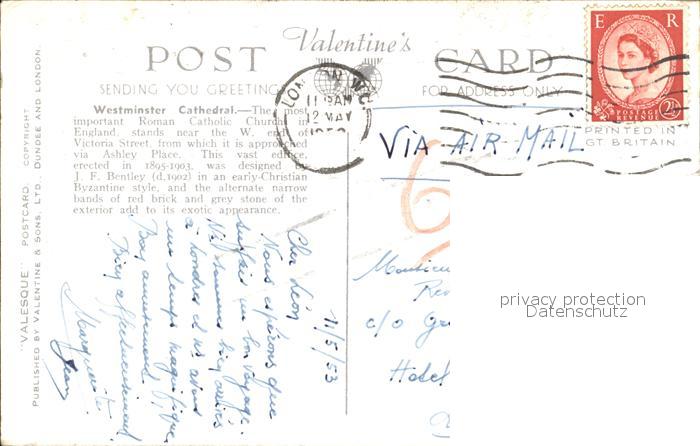 POST Valentine's CARD
SENDING YOU GREETINGS
FOR ADDRESS ONLY
Westminster Cathedral.—The most
important Roman Catholic Church in
England, stands near the W. end of
Victoria Street, from which it is approached
via Ashley Place. This vast edifice,
erected in 1895-1903, was designed by
J. F. Bentley (d,1902) in an early-Christian
Byzantine style, and the alternate narrow
bands of red brick and grey stone of the
exterior add to its exotic appearance.
"VALESQUE" POSTCARD. COPYRIGHT
PUBLISHED BY VALENTINE & SONS, LTD. DUNDEE AND LONDON.
11 AM
12 MAY
E R
POSTAGE
REVENUE
2½
PRINTED IN
GT BRITAIN
VIA AIR MAIL
11/5/53
Cher Léon
Nous espérons que
un bon voyage.
Nous sommes bien arrivés
à Londres et ns avons
un temps magnifique
Bon amusement,
Bien affectueusement
Marguerite
Jean
c/o
Hotel
privacy protection
Datenschutz